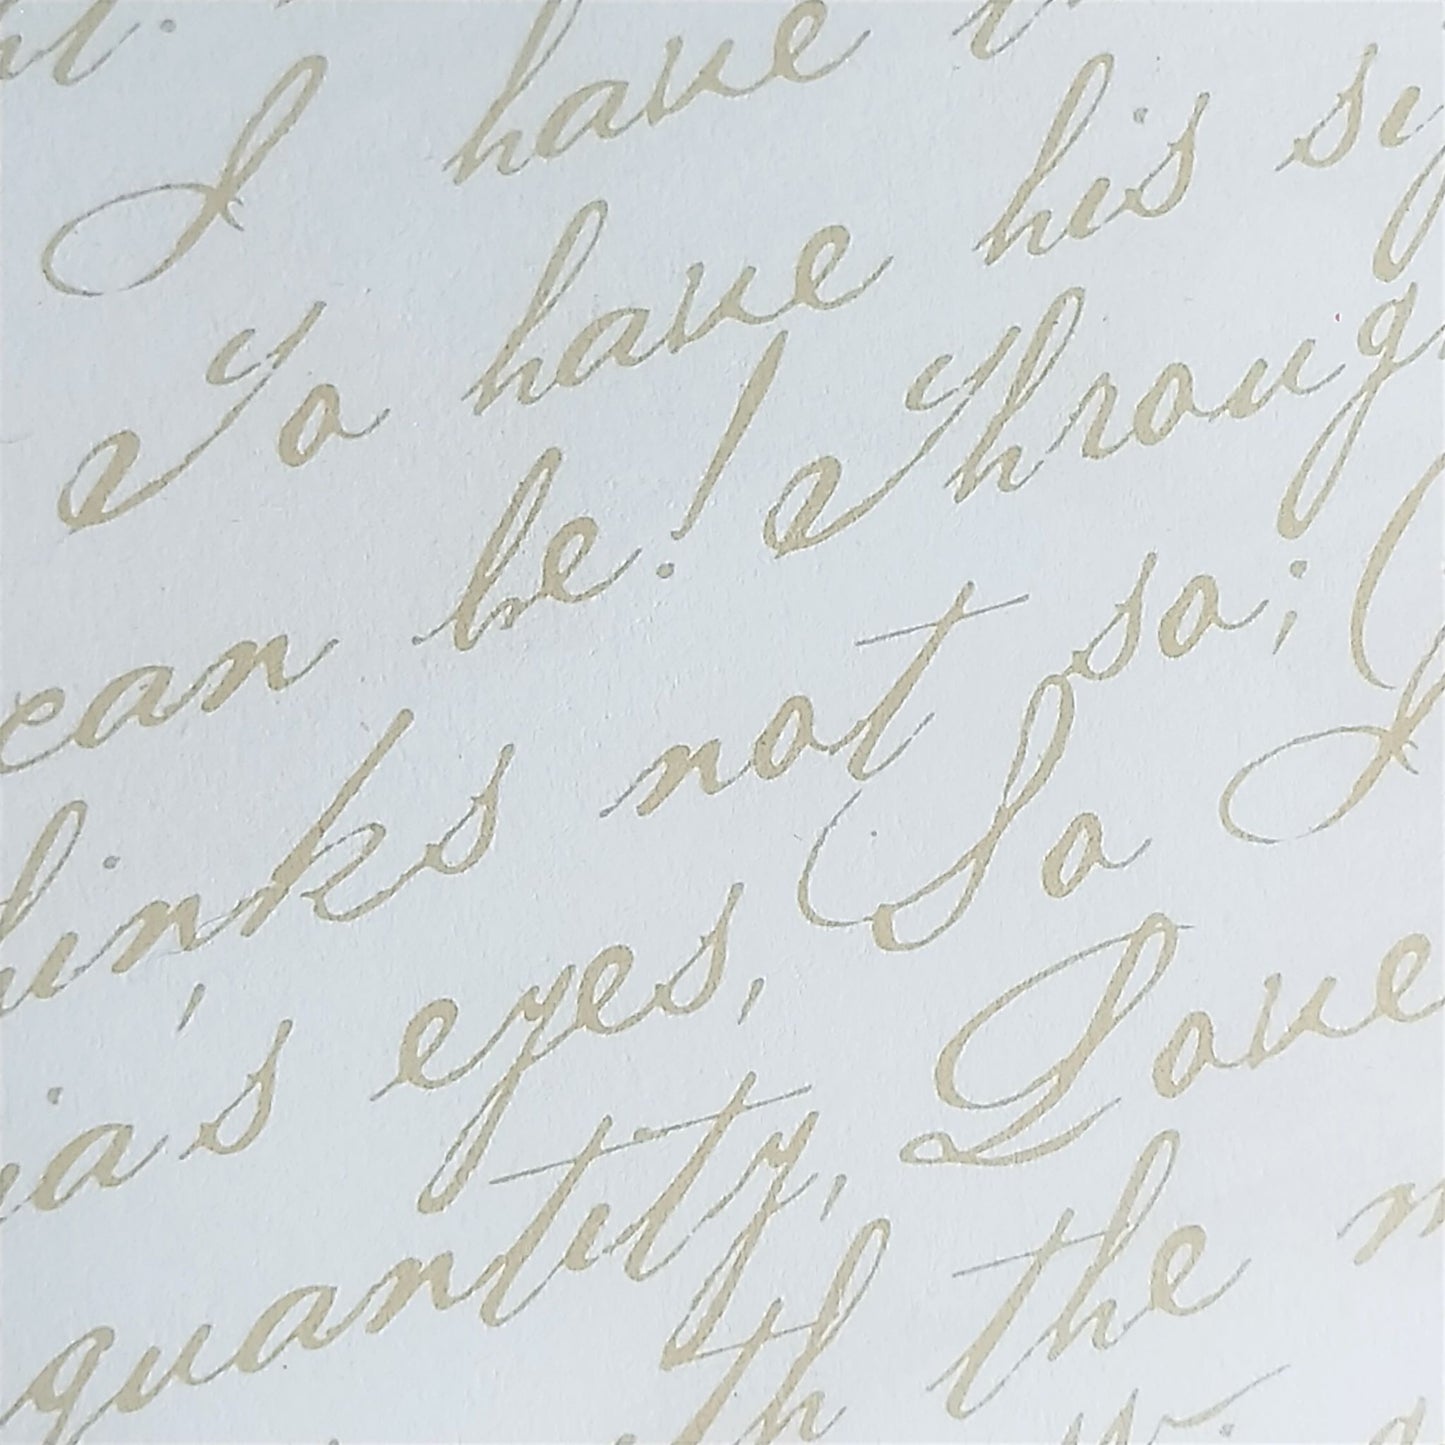 I have
To have his
can be! Throug
hinks not so;
ia's eyes, So I
quantity, Love
th the